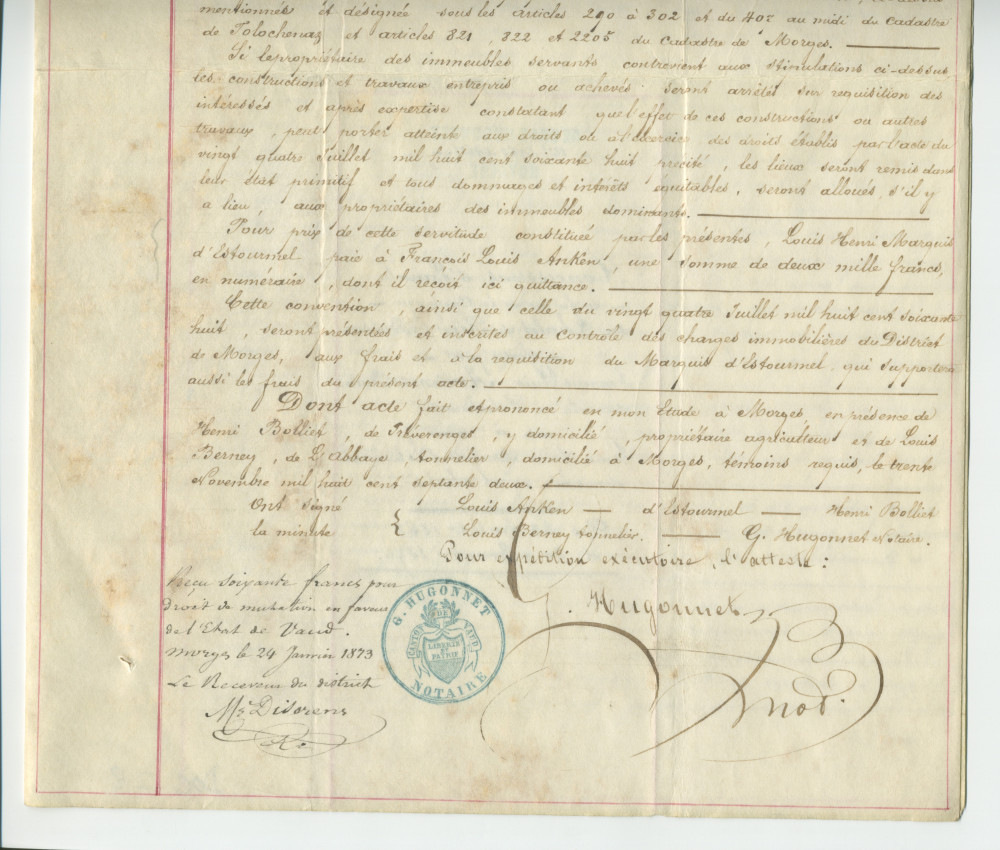 mentionnés et désignée sous les articles 290 à 302 et du 40? au midi du Cadastre
de Tolochenaz et articles 821, 822 et 2205 du Cadastre de Morges.
Si le propriétaire des immeubles servants contrevient aux stimulations ci-dessus
les constructions et travaux entrepris ou achevés seront arrêtés sur requisition des
intéressés et après expertise constatant que l'effet de ces constructions ou autres
travaux, peut porter atteinte aux droits ou à l'exercice des droits établis par l'acte du
vingt quatre Juillet mil huit cent soixante huit précité, les lieux seront remis dans
leur état primitif et tous dommages et intérêts équitables, seront alloués, s'il y
a lieu, aux propriétaires des immeubles dominants.
Pour prix de cette servitude constituée par les présentes, Louis Henri Marquis
d'Estourmel paie à François Louis Anken, une somme de deux mille francs,
en numéraire, dont il reçoit ici quittance.
Cette convention, ainsi que celle du vingt quatre Juillet mil huit cent soixante
huit, seront présentées et inscrites au Contrôle des charges immobilières du District
de Morges, aux frais et à la requisition du Marquis d'Estourmel qui supportera
aussi les frais du présent acte.
Dont acte fait et prononcé en mon Etude à Morges en présence de
Henri Bolliet, de Préverenges, y domicilié, propriétaire agriculteur et de Louis
Berney, de L'Abbaye, tonnelier, domicilié à Morges, témoins requis, le trente
Novembre mil huit cent septante deux.
Ont signé Louis Anken — d'Estourmel — Henri Bolliet
la minute { Louis Berney tonnelier. — G. Hugonnet Notaire.
Pour expédition exécutoire, l'atteste:
G. Hugonnet
not.
Reçu soixante francs pour
droit de mutation en faveur
de l'Etat de Vaud.
Morges le 24 Janvier 1873
Le Receveur du district
Mc Diserens
Rr
G. HUGONNET
CANTON DE VAUD
LIBERTE
ET
PATRIE
NOTAIRE